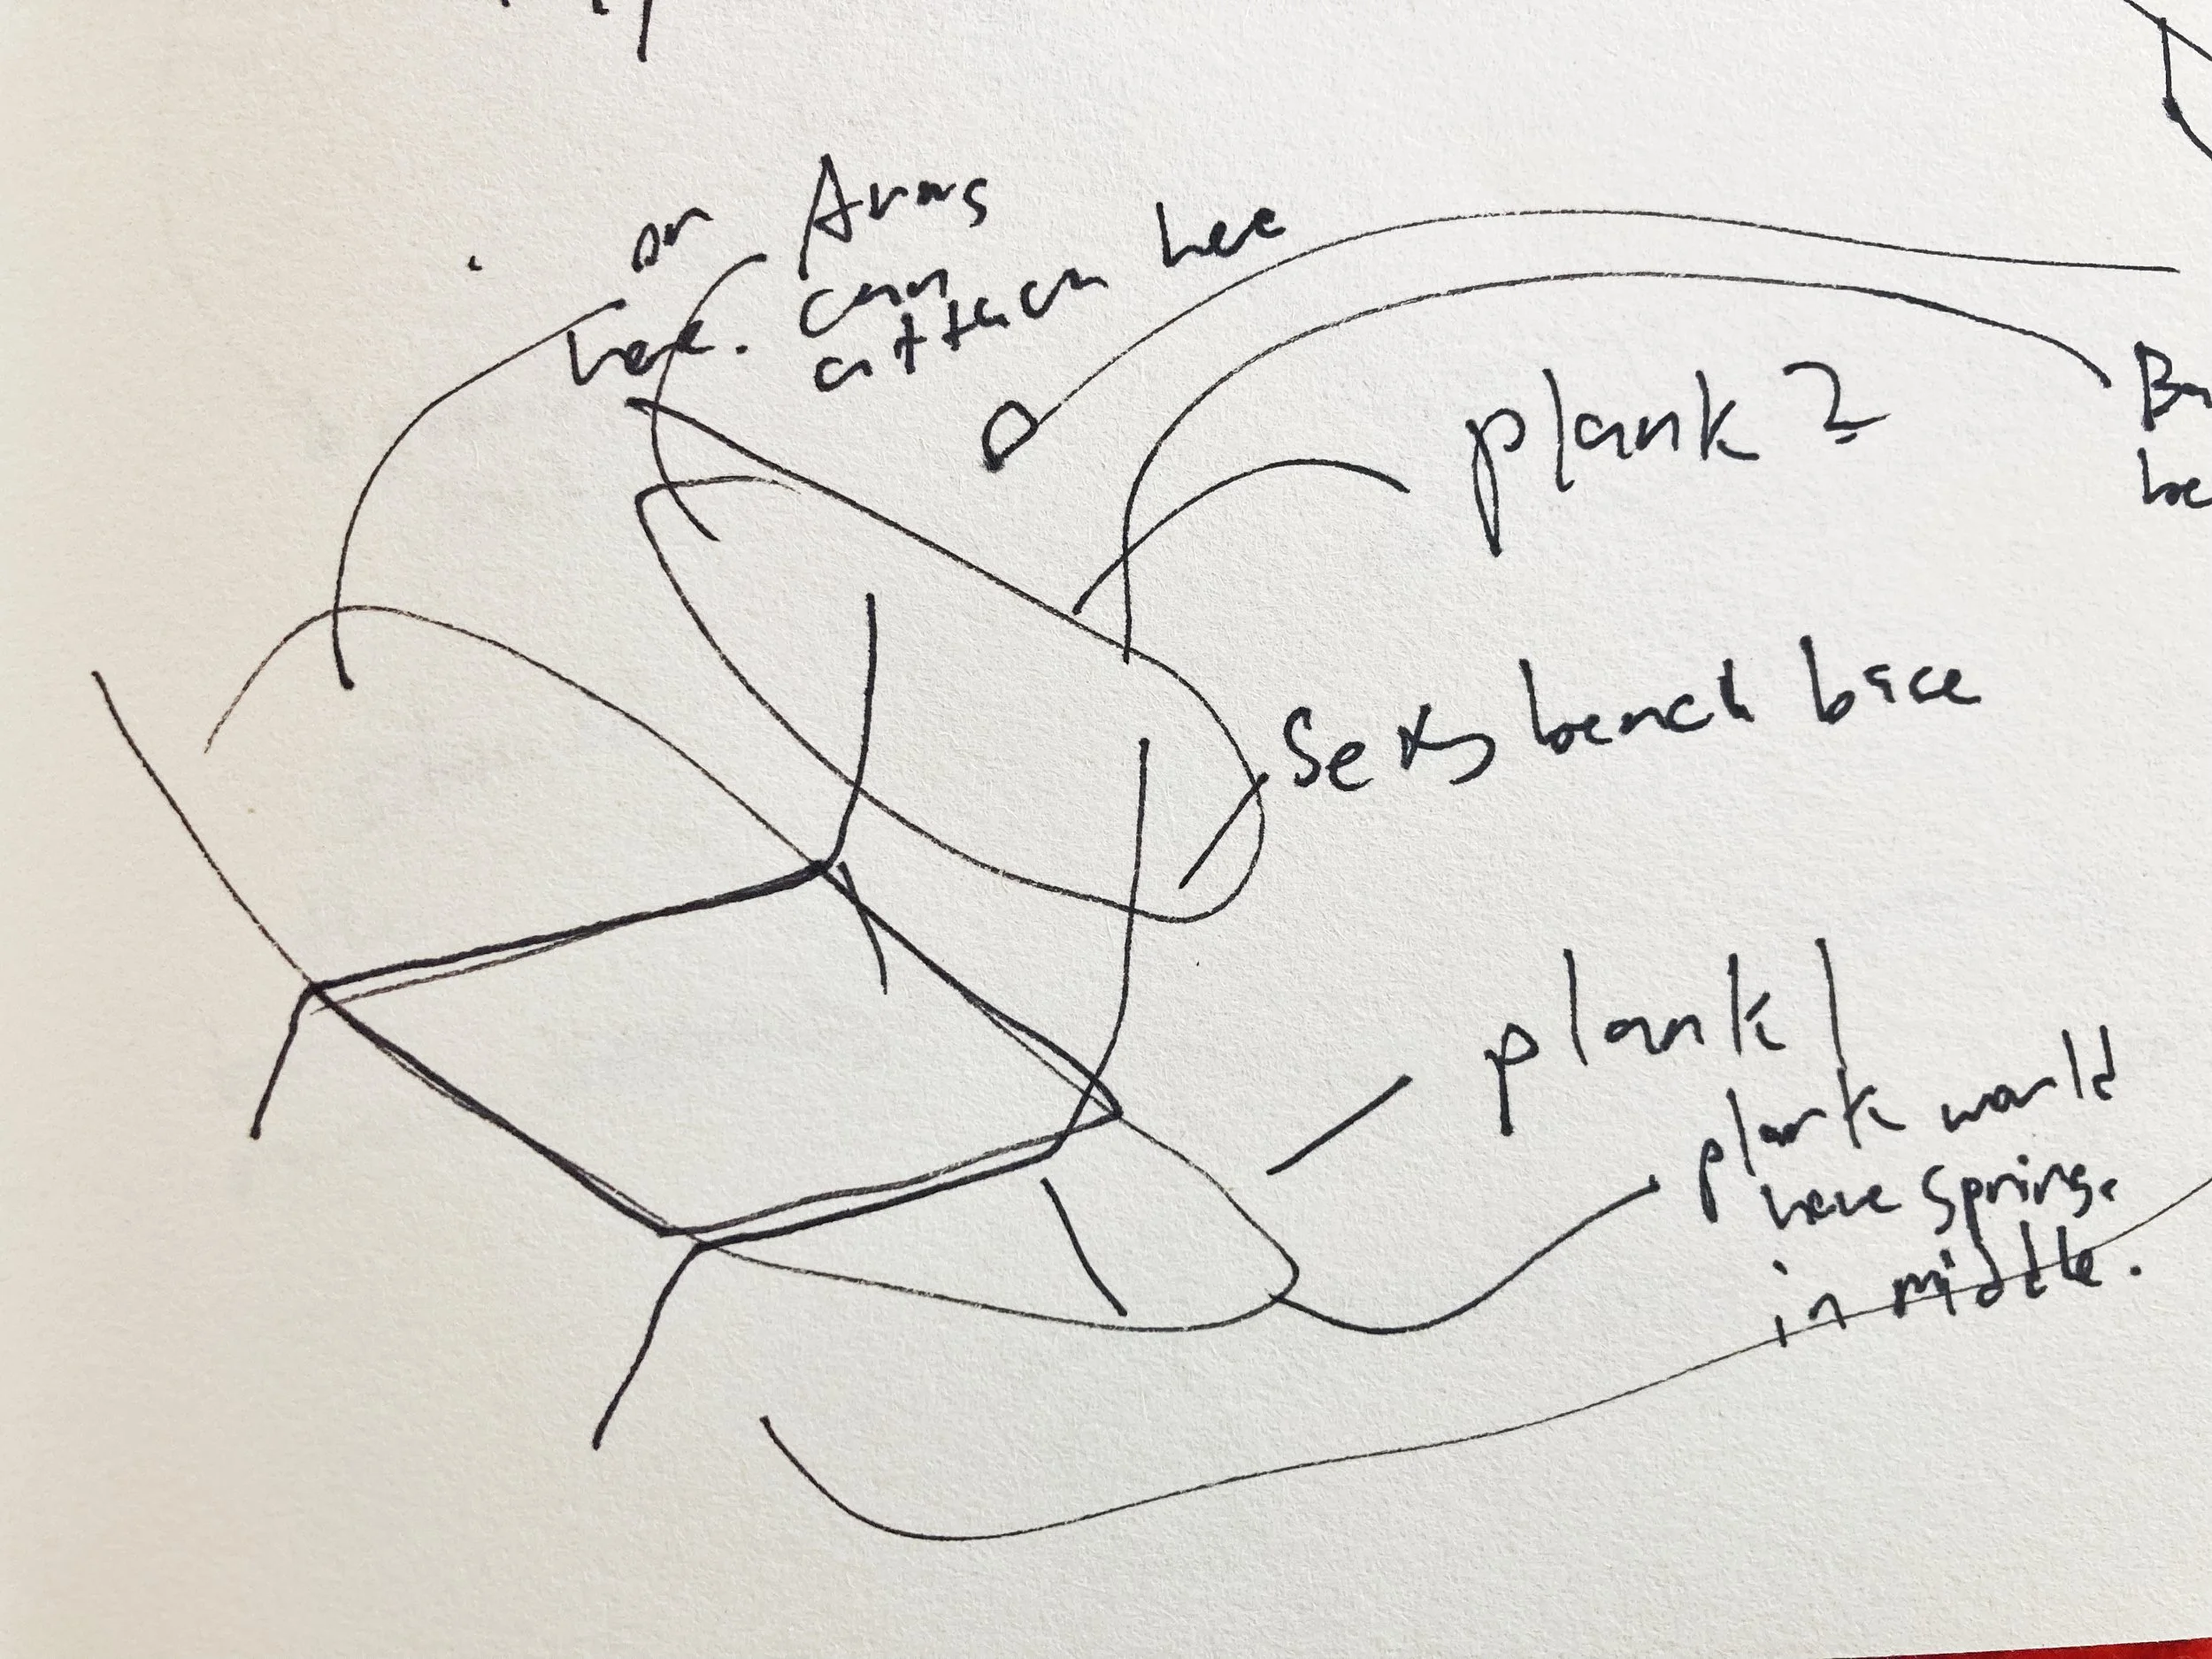 or
here.
Arms
can
attach here
plank 2
Sexy bench base
plank 1
plank would
have spring.
in middle.